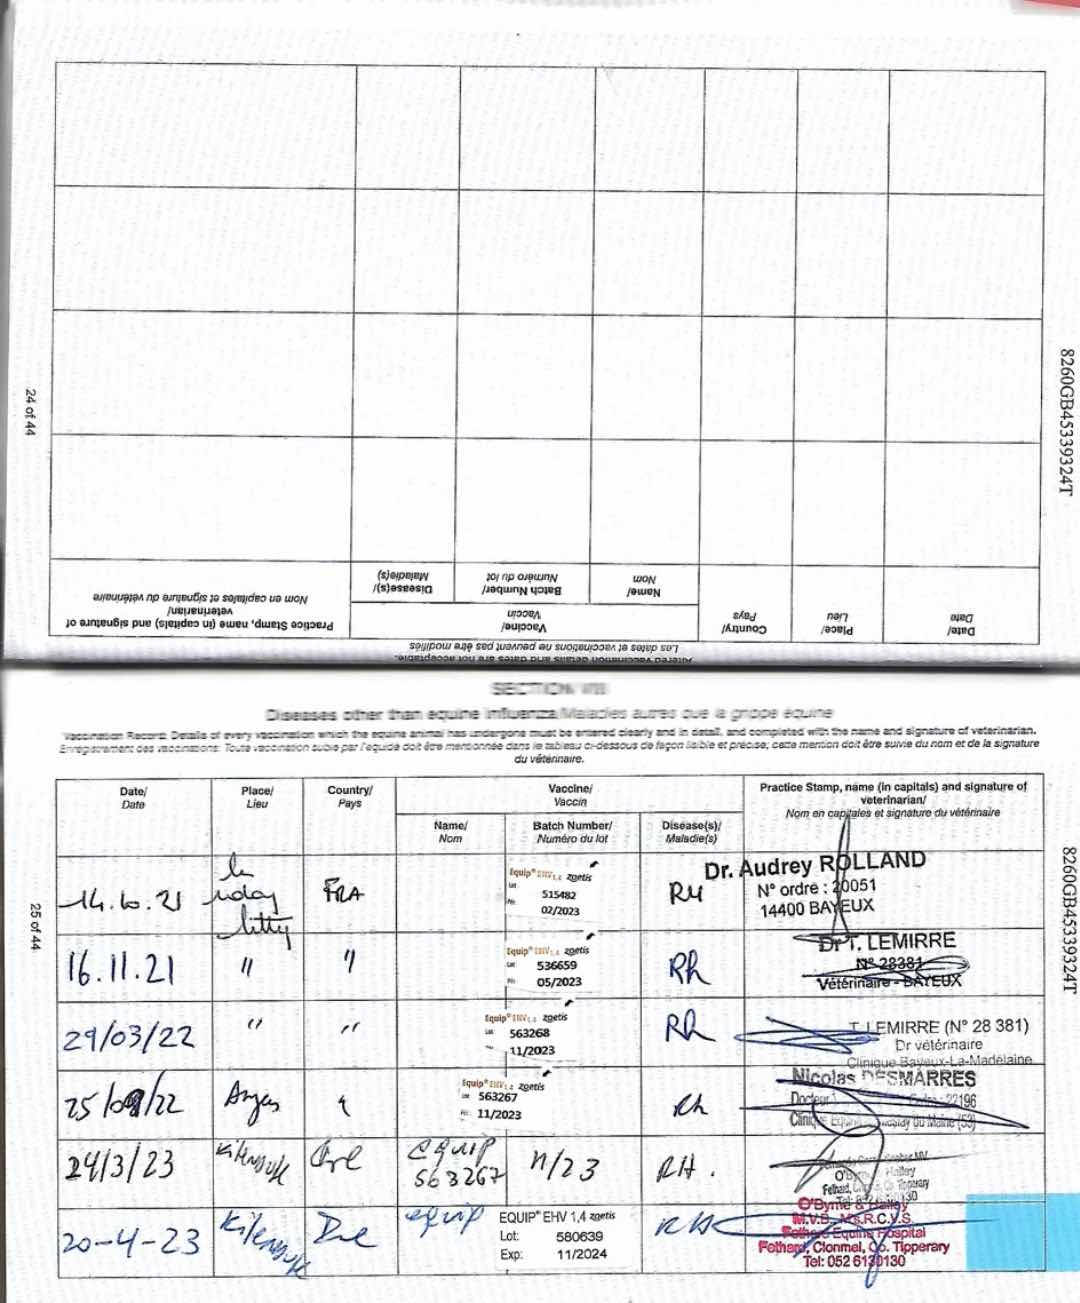 Practice Stamp, name (in capitals) and signature of veterinarian/
Nom en capitales et signature du vétérinaire
Disease(s)/
Maladie(s)
Batch Number/
Numéro du lot
Name/
Nom
Vaccine/
Vaccin
Country/
Pays
Place/
Lieu
Date/
Date
Altered vaccination details and dates are not acceptable.
Les dates et vaccinations ne peuvent pas être modifiés
24 of 44
8260GB45339324T
SECTION VIII
Diseases other than equine influenza/Maladies autres que la grippe équine
Vaccination Record: Details of every vaccination which the equine animal has undergone must be entered clearly and in detail, and completed with the name and signature of veterinarian.
Enregistrement des vaccinations: Toute vaccination subie par l'equidé doit être mentionnée dans le tableau ci-dessous de façon lisible et précise; cette mention doit être suivie du nom et de la signature
du vétérinaire.
Date/
Date
Place/
Lieu
Country/
Pays
Vaccine/
Vaccin
Name/
Nom
Batch Number/
Numéro du lot
Disease(s)/
Maladie(s)
Practice Stamp, name (in capitals) and signature of
veterinarian/
Nom en capitales et signature du vétérinaire
14.10.21
FRA
Equip® EHV1,4 zoetis
515482
02/2023
Dr. Audrey ROLLAND
N° ordre : 20051
14400 BAYEUX
16.11.21 " "
Equip® EHV1,4 zoetis
536659
05/2023
Rh
Dr T. LEMIRRE
N° 28381
Vétérinaire - BAYEUX
29/03/22 " "
Equip® EHV1,4 zoetis
563268
11/2023
Rh
T. LEMIRRE (N° 28 381)
Dr vétérinaire
Clinique Bayeux-La-Madelaine
25/09/22
Equip® EHV1,4 zoetis
563267
11/2023
Rh
Nicolas DESMARRES
22196
29/3/23
equip
563267
11/23
RH.
20-4-23
equip
EQUIP® EHV 1,4 zoetis
Lot: 580639
Exp: 11/2024
RH
O'Byrne & Halley
M.V.B., M.R.C.V.S.
Fethard Equine Hospital
Fethard, Clonmel, Co. Tipperary
Tel: 052 6130130
25 of 44
8260GB45339324T